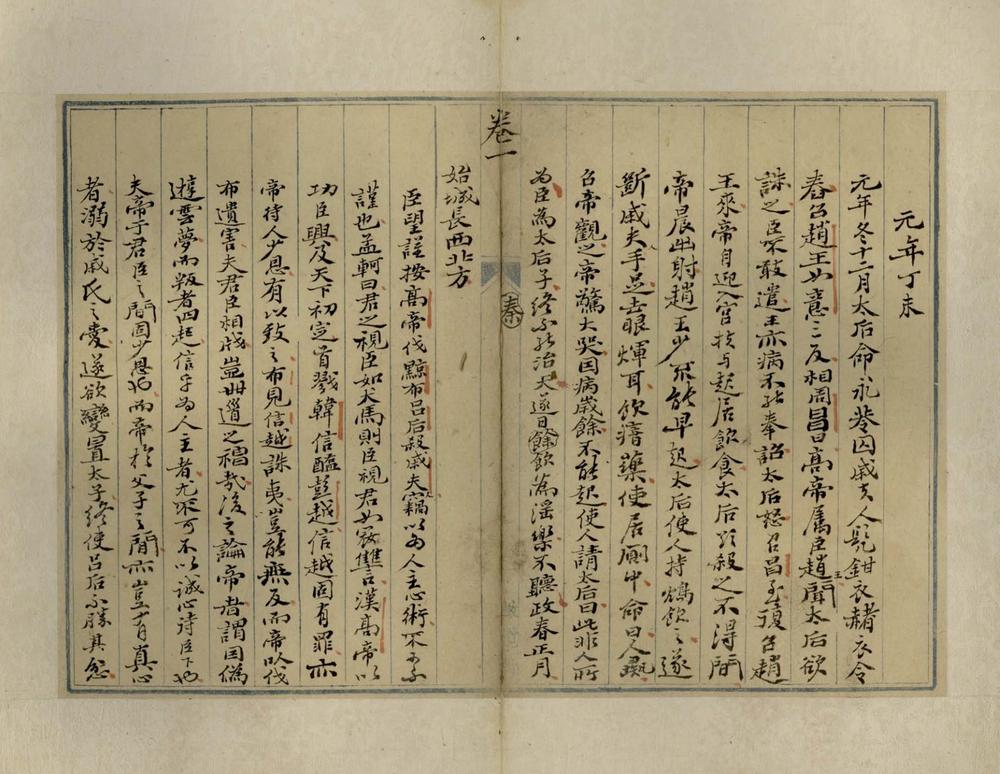 元年丁未
元年冬十二月太后命永巷囚戚夫人髡鉗衣赭衣令
舂召趙王如意三反相周昌曰高帝属臣趙王聞太后欲
誅之臣不敢遣王亦病不能奉詔太后怒召昌至復召趙
王來帝自迎入宮挾与起居飲食太后欲殺之不得間
帝晨出射趙王少不能早起太后使人持鴆飲之遂
斷戚夫手足去眼煇耳飲瘖藥使居厠中命曰人彘
召帝觀之帝驚大哭因病歲餘不能起使人請太后曰此非人所
为臣為太后子終不能治天遂日飲為淫樂不聽政春正月
卷一
秦
始城長西北方
臣望謹按高帝伐黥布吕后殺戚夫竊以为人主心術不可不
謹也孟軻曰君之視臣如犬馬則臣視君如寇讐漢高帝以
功臣興及天下初定首戮韓信醢彭越信越固有罪亦
帝待人少恩有以致之布見信越誅夷豈能無反而帝以伐
布遺害夫君臣相戕豈世道之福哉後之論帝者謂因偽
遊雲夢而叛者四起信乎为人主者尤不可不以誠心待臣下也
夫帝于君臣之間固少恩也而帝於父子之間亦豈有真心
者溺於戚氏之愛遂欲變置太子終使吕后不勝其忿